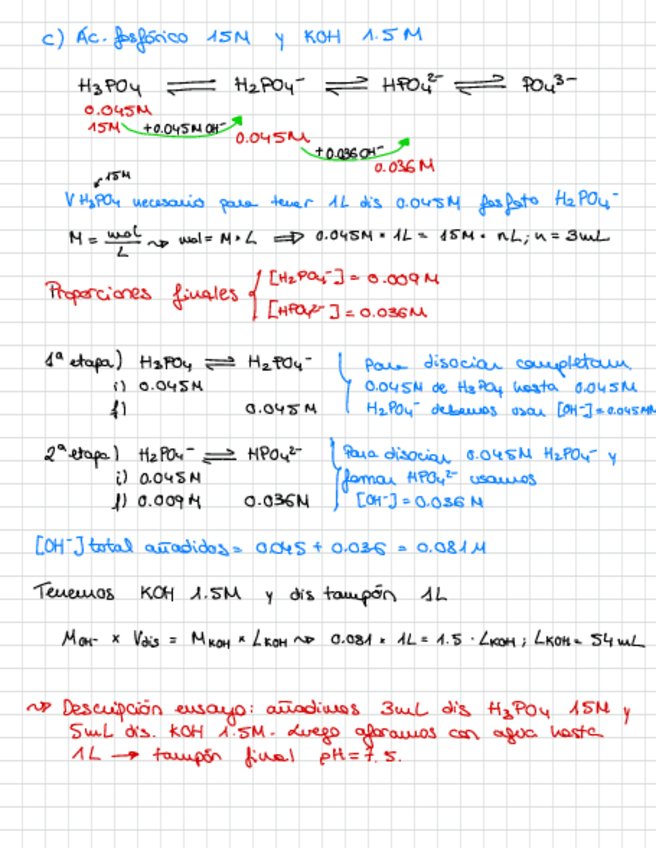 c) Ác. fosfórico 15M y KOH 1.5M
H₃PO₄ ⇌ H₂PO₄⁻ ⇌ HPO₄²⁻ ⇌ PO₄³⁻
0.045M
15M +0.045M OH⁻ 0.045M
+0.036 OH⁻ 0.036M
15M
V H₃PO₄ necesario para tener 1L dis 0.045M fosfato H₂PO₄⁻
M = mol/L ⇝ mol = M·L ⇒ 0.045M · 1L = 15M · nL; n = 3mL
Proporciones finales { [H₂PO₄⁻] = 0.009M
[HPO₄²⁻] = 0.036M
1ª etapa) H₃PO₄ ⇌ H₂PO₄⁻ Para disociar completam
i) 0.045M 0.045M de H₃PO₄ hasta 0.045M
f) 0.045M H₂PO₄⁻ debemos usar [OH⁻] = 0.045M
2ª etapa) H₂PO₄⁻ ⇌ HPO₄²⁻ Para disociar 0.045M H₂PO₄⁻ y
i) 0.045M formar HPO₄²⁻ usamos
f) 0.009M 0.036M [OH⁻] = 0.036M
[OH⁻] total añadidos = 0.045 + 0.036 = 0.081M
Tenemos KOH 1.5M y dis tampón 1L
M OH⁻ × V dis = M KOH × L KOH ⇝ 0.081 × 1L = 1.5 · L KOH; L KOH = 54mL
⇝ Descripción ensayo: añadimos 3mL dis H₃PO₄ 15M y
5mL dis. KOH 1.5M. Luego aforamos con agua hasta
1L → tampón final pH = 7.5.